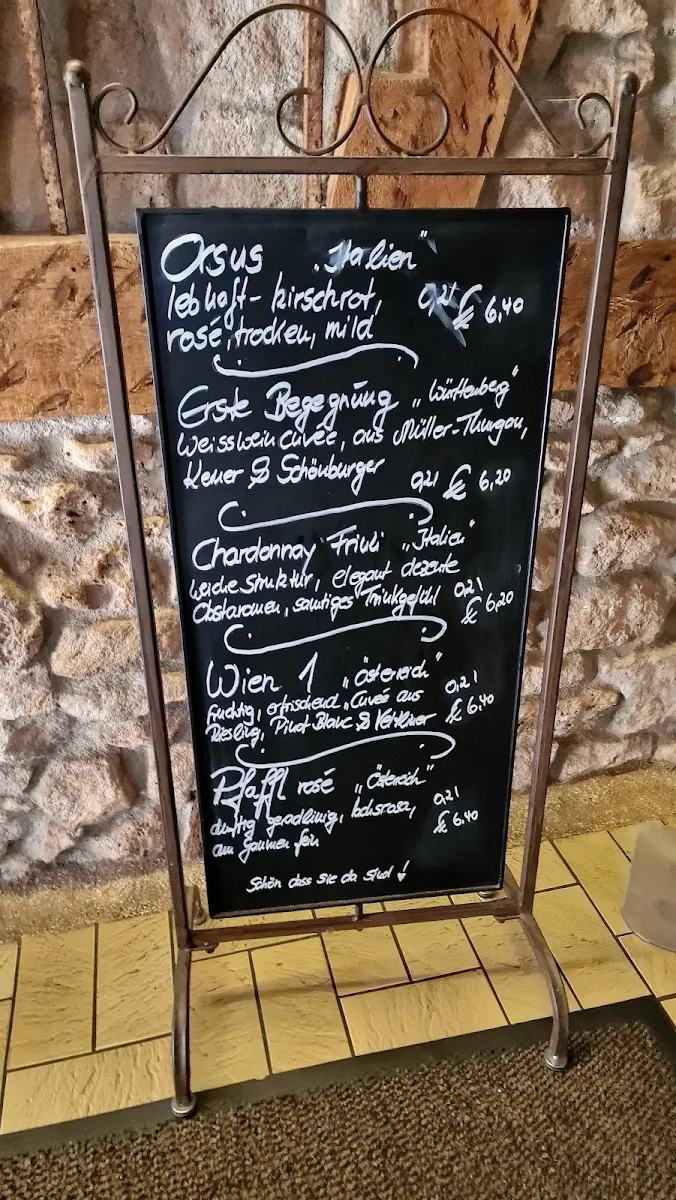 Orsus „Italien“
lebhaft- kirschrot, 0,2l € 6,40
rosé, trocken, mild
Erste Begegnung „Württenberg“
Weisswein cuvée, aus Müller-Thurgau,
Kerner & Schönburger 0,2l € 6,20
Chardonnay Friuli „Italien“
weiche Struktur, elegant dezente 0,2l
Obstaromen, samtiges Trinkgefühl € 6,20
Wien 1 „Östereich“
fruchtig, erfrischend, Cuvée aus 0,2l
Riesling, Pinot Blanc & Veltliner € 6,40
Pfaffl rosé „Östereich“
duftig geradlinig, lachsrosa, 0,2l
am gaumen fein € 6.40
Schön dass Sie da sind!